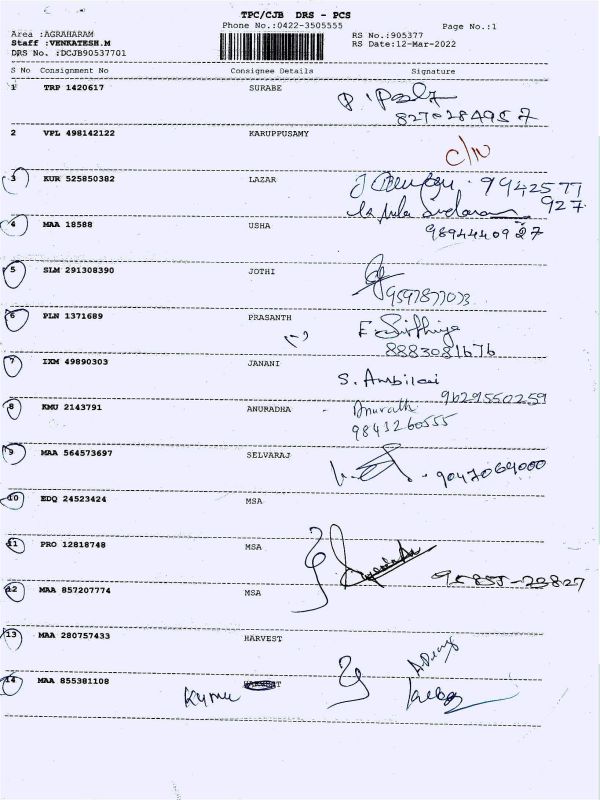 TPC/CJB DRS - PCS
Phone No.:0422-3505555
Page No.:1
Area :AGRAHARAM
RS No.:905377
Staff :VENKATESH.M
RS Date:12-Mar-2022
DRS No. :DCJB90537701
S No Consignment No Consignee Details Signature
1 TRP 1420617 SURABE
8270284957
2 VPL 498142122 KARUPPUSAMY
C/N
3 KUR 525850382 LAZAR
9942577
927
4 MAA 18588 USHA
9894440927
5 SLM 291308390 JOTHI
9597877073
6 PLN 1371689 PRASANTH
8883081676
7 IXM 49890303 JANANI
S. Ambilai
9629550259
8 KMU 2143791 ANURADHA
9843260555
9 MAA 564573697 SELVARAJ
9047064000
10 EDQ 24523424 MSA
11 PRO 12818748 MSA
12 MAA 857207774 MSA
95855-23827
13 MAA 280757433 HARVEST
14 MAA 855381108